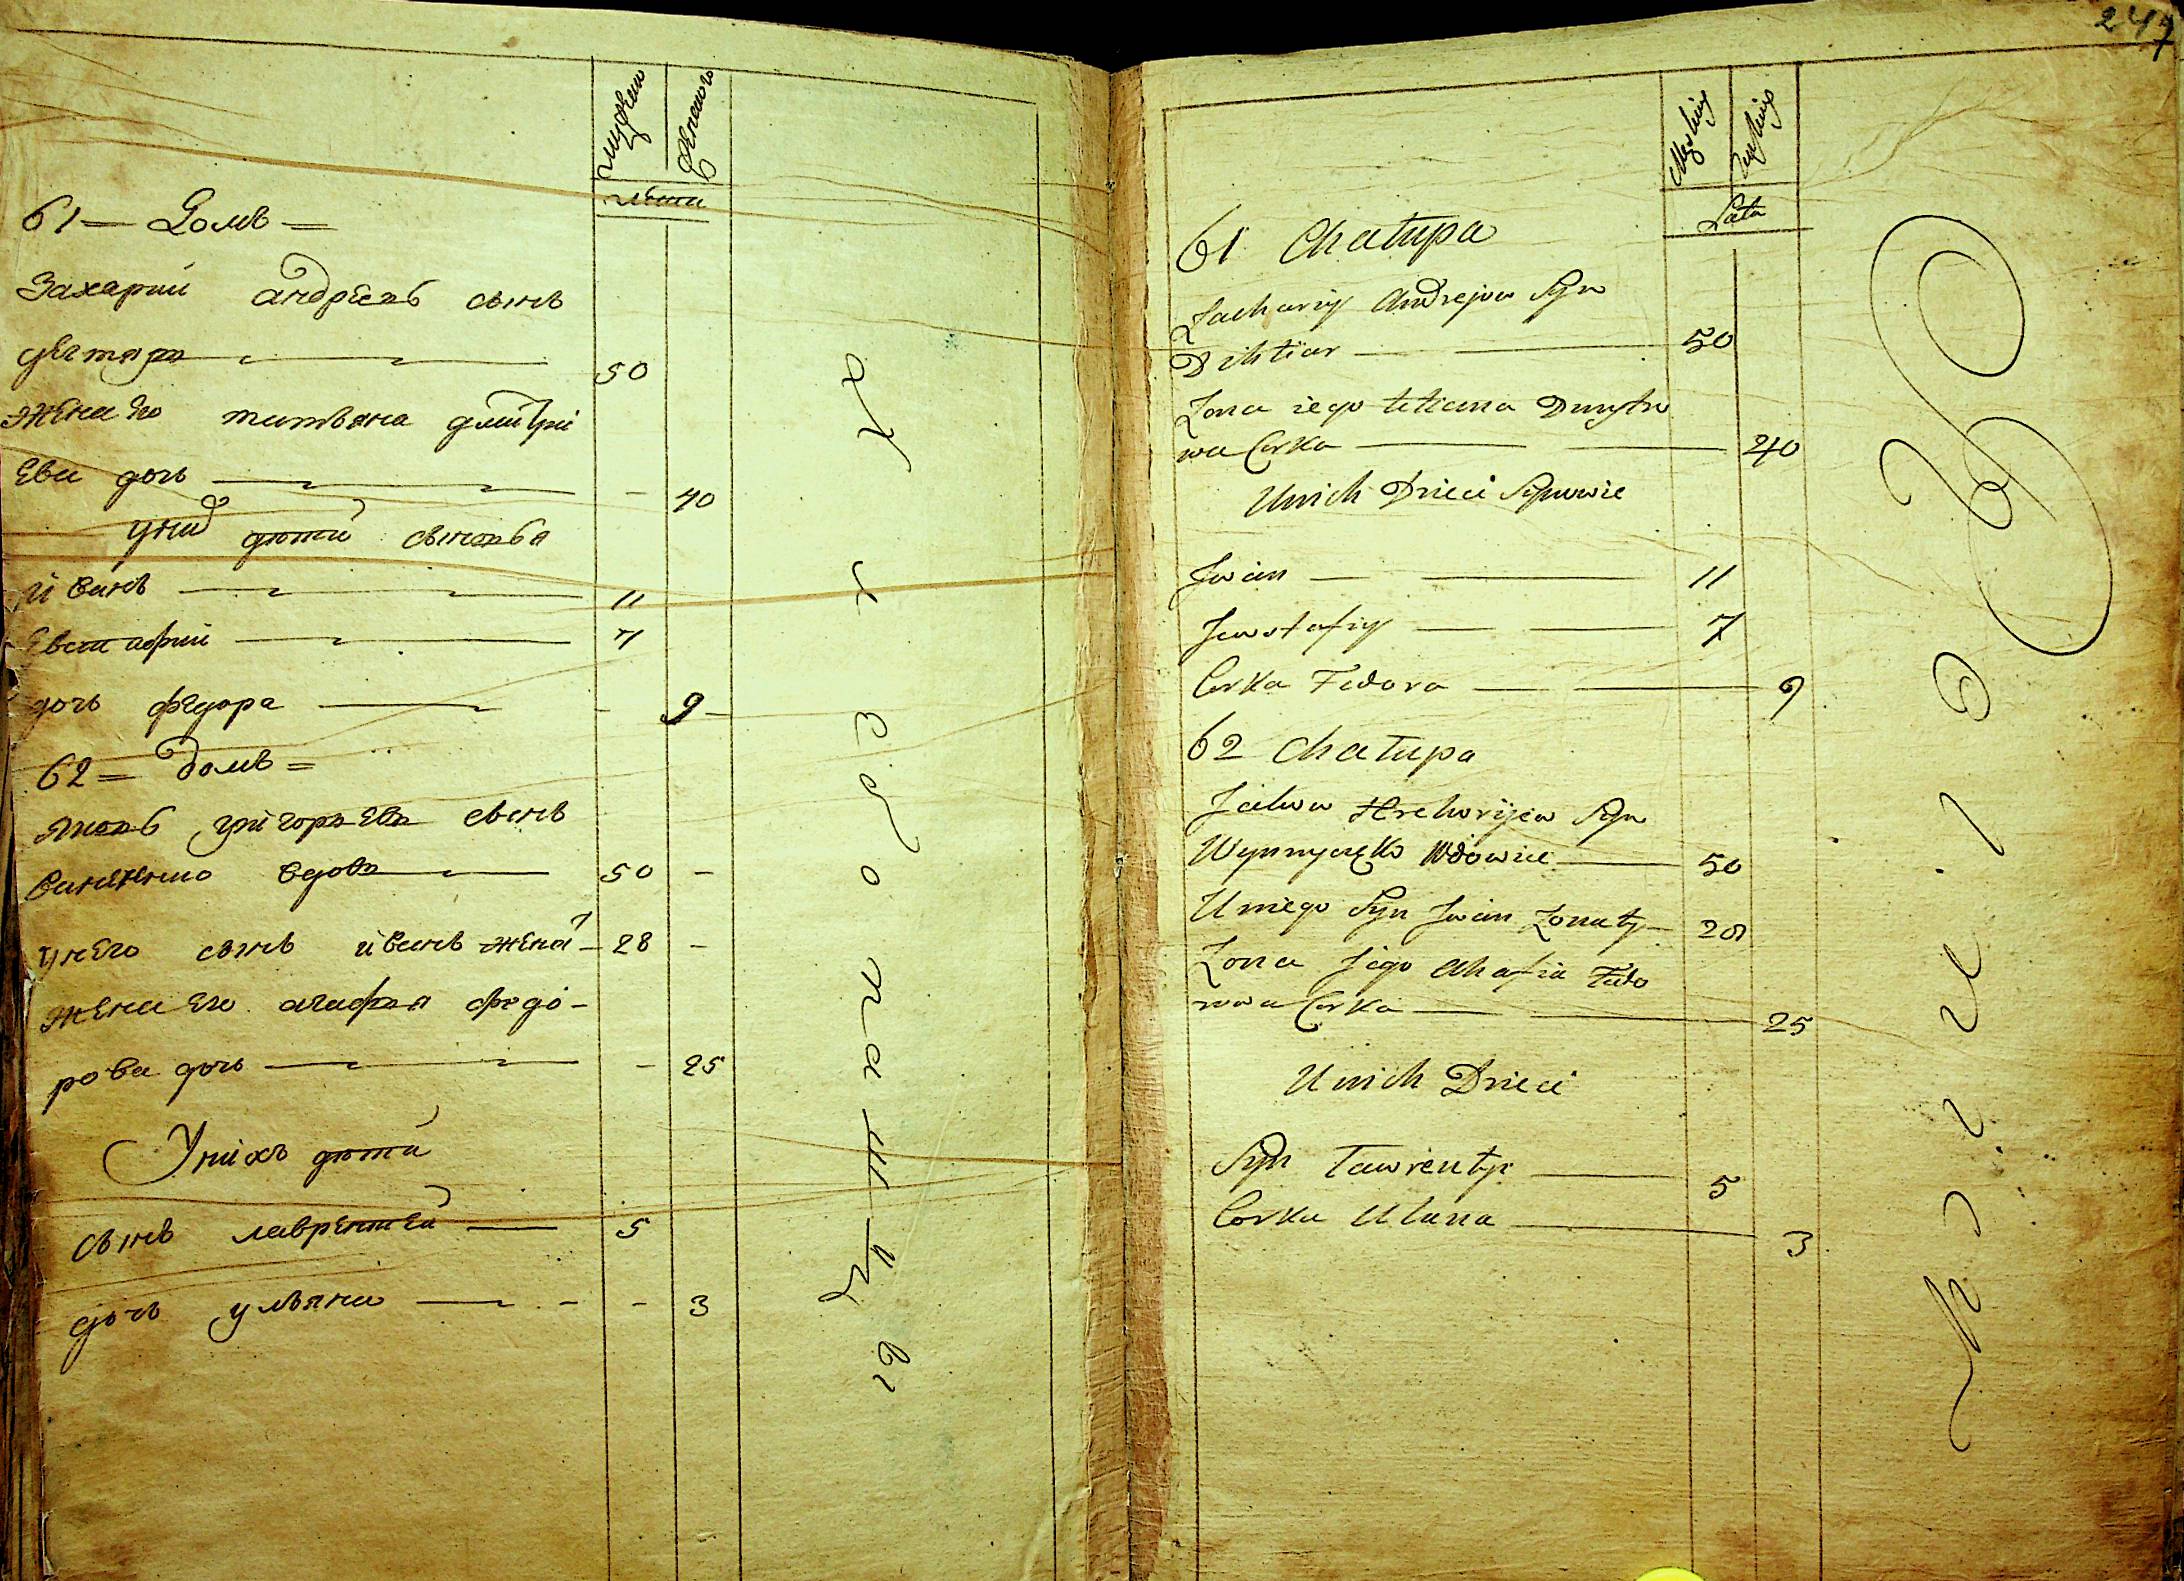 мужеска
женска
лѣта
61 — Домъ —
Захарий андрѣевъ сынъ
дегтяръ 50
жена его татьяна дмитрі
ева дочь - 40
у них дѣти сыновья
иванъ 11
Евстафий 7
дочь федора - 9
62 = домъ =
яковъ григорьевъ сынъ
вдовъ 50 -
у него сынъ иванъ жена 28 -
жена его агафья федо-
рова дочь - 25
У нихъ дѣти
сынъ лаврентей 5
дочь ульяна - 3
247
Męskiey
Lata
61 Chałupa
Zachariy Andrejew Syn
Dihtiar 50
Zona iego tetiana Dmytro
wa Corka 40
U nich Dzieci Synowie
Iwan 11
Jewstafiy 7
Corka Fedora 9
62 Chałupa
Jakow Hrehoryiew Syn
Wdowiec 50
U niego Syn Iwan Zonaty 28
Zona Jego Ahafia Fedo
rowa Corka 25
U nich Dzieci
Syn Ławrenty 5
Corka Ulana 3